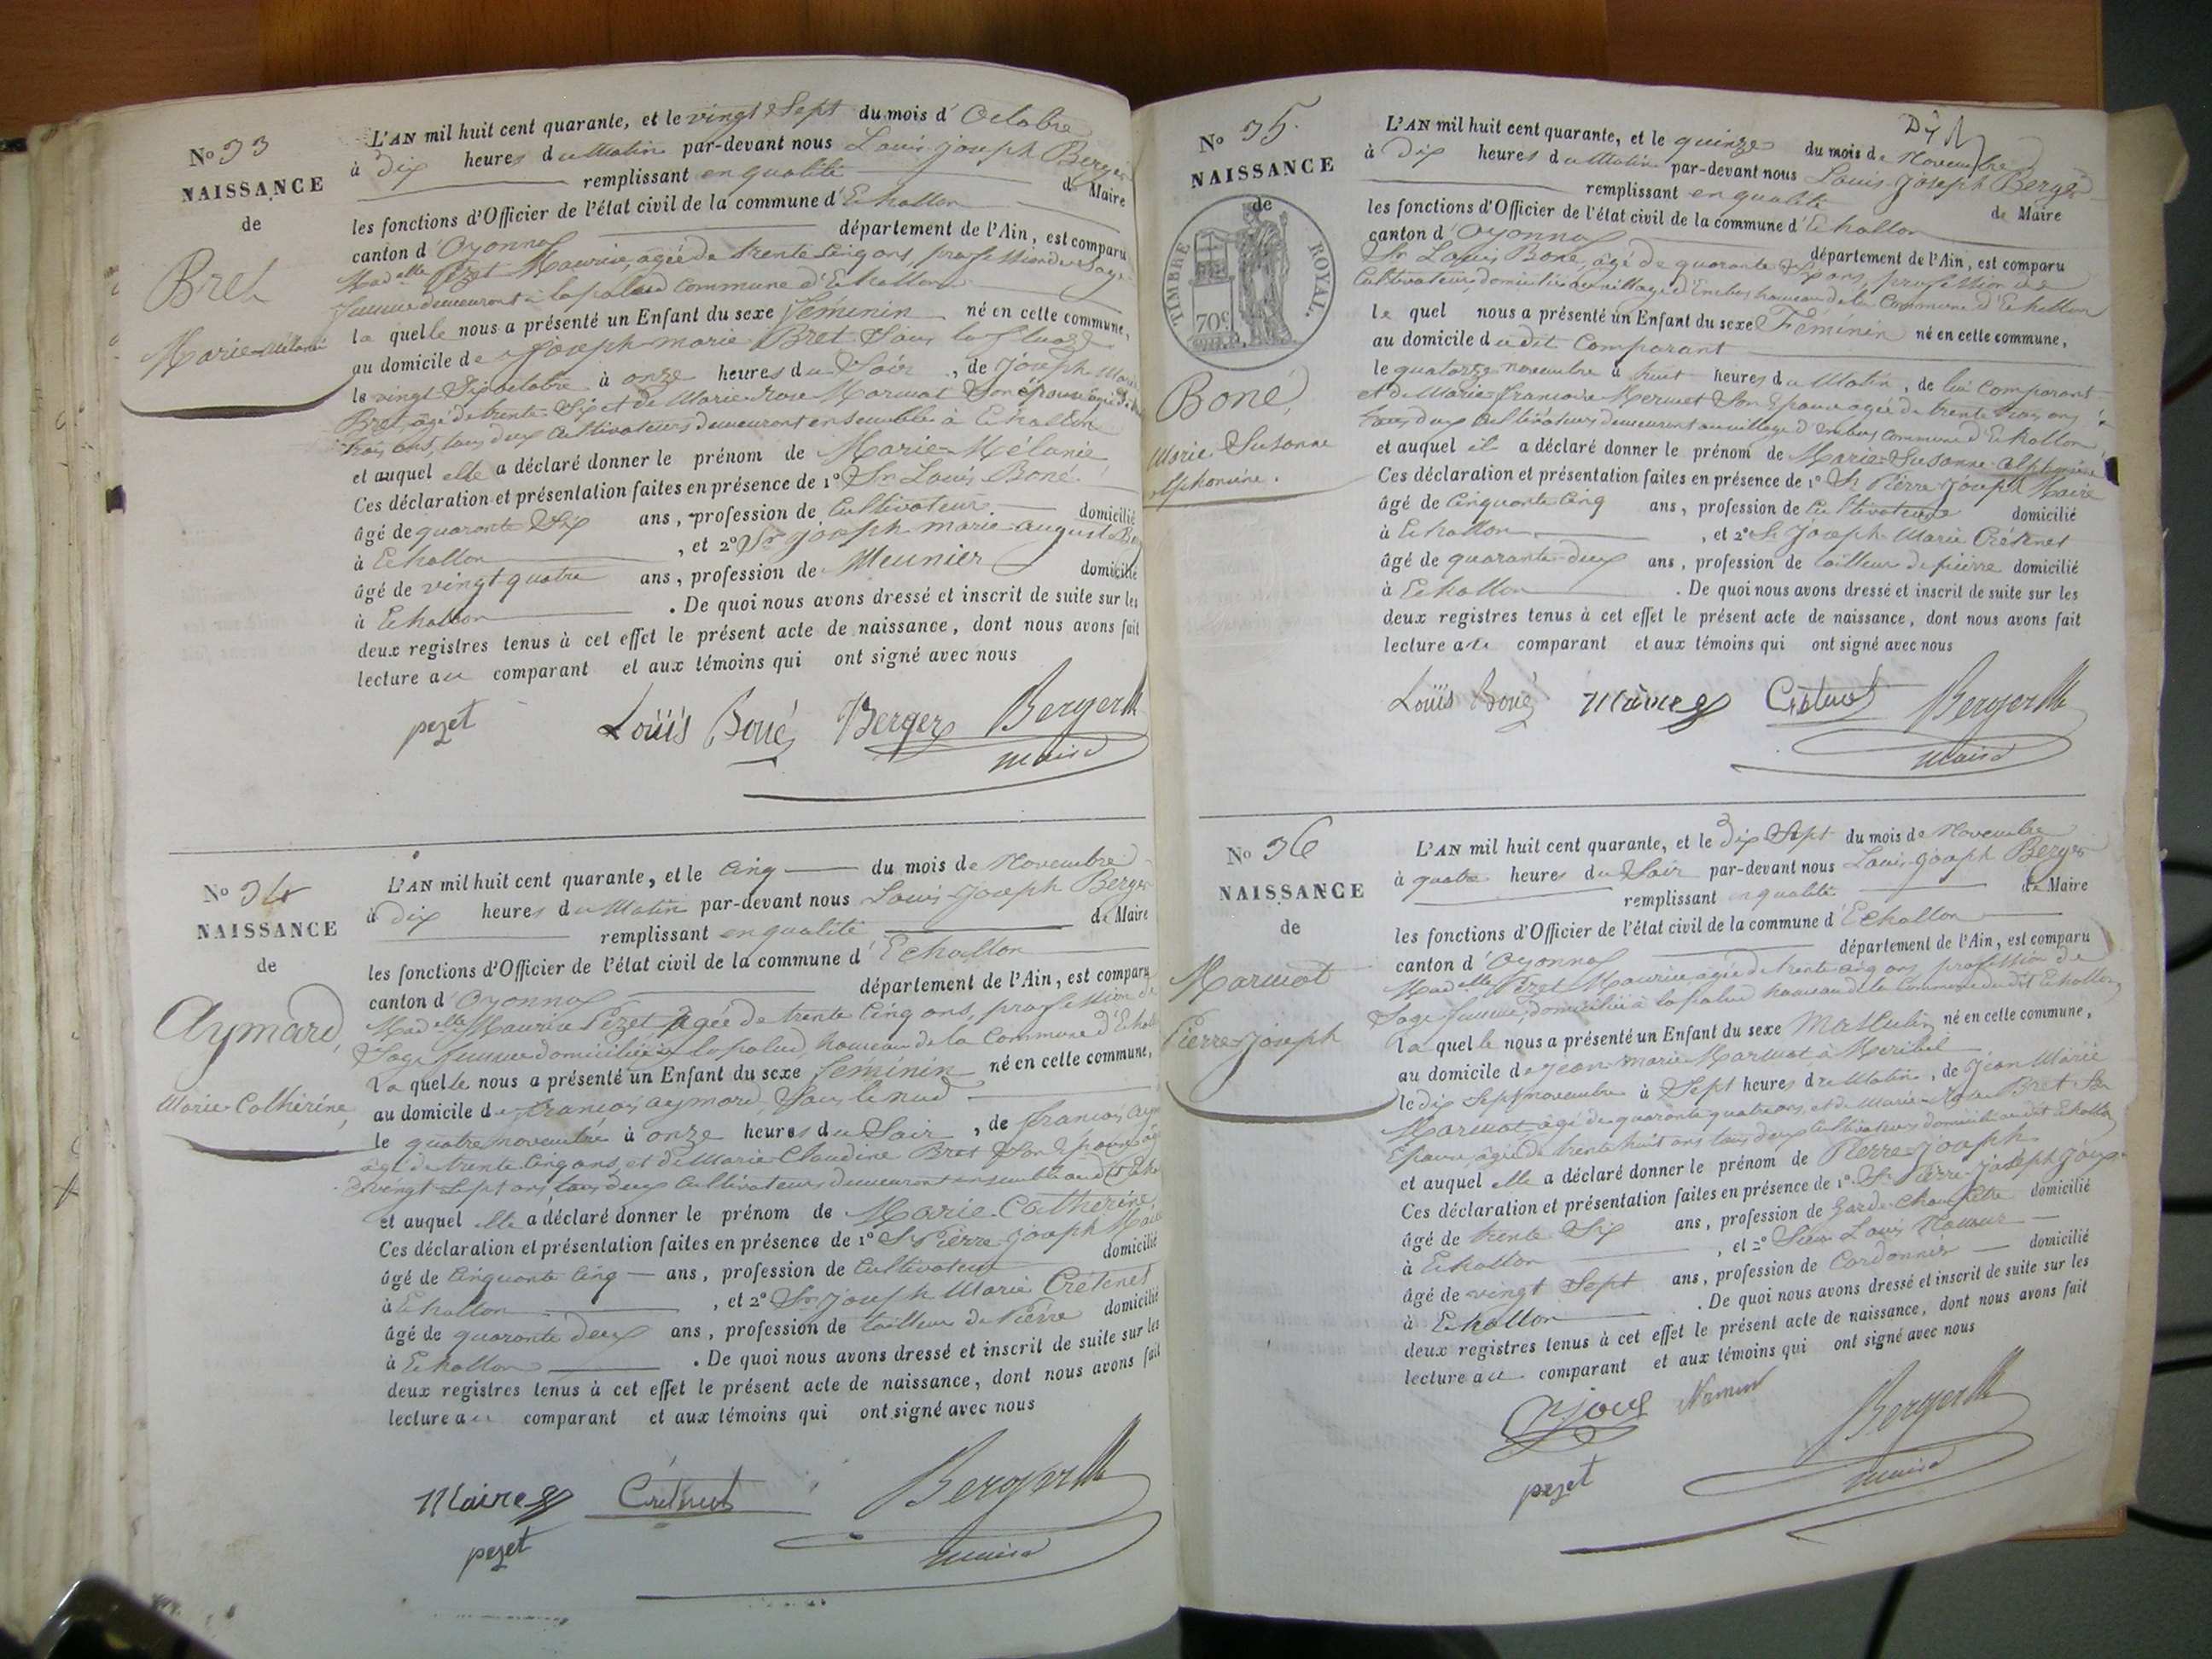 N° 33
NAISSANCE
de
Bret
Marie Mélanie
L'AN mil huit cent quarante, et le vingt & Sept du mois d' Octobre
à dix heures du Matin par-devant nous Louis joseph Berger
remplissant en qualité de Maire
les fonctions d'Officier de l'état civil de la commune d' Echallon
canton d' Oyonnax département de l'Ain, est comparu
Mad.elle Pezet Maurice, agée de trente cinq ans, profession de Sage
femme demeurant à lapalud commune d'Echallon
la quelle nous a présenté un Enfant du sexe féminin né en cette commune,
au domicile de joseph marie Bret Sous
le vingt Six octobre à onze heures du Soir, de joseph Marie
Bret, âgé de trente Six et de Marie rose Marmot Son épouse agée de
trois ans, tous deux Cultivateurs demeurant ensemble à Echallon
et auquel elle a déclaré donner le prénom de Marie-Mélanie
Ces déclaration et présentation faites en présence de 1° Sr Louis Boné
âgé de quarante Six ans, profession de Cultivateur domicilié
à Echallon, et 2° Sr joseph marie auguste
âgé de vingt quatre ans, profession de Meunier domicilié
à Echallon. De quoi nous avons dressé et inscrit de suite sur les
deux registres tenus à cet effet le présent acte de naissance, dont nous avons fait
lecture au comparant et aux témoins qui ont signé avec nous
pezet Louïs Boné Berger Berger
maire
N° 34
NAISSANCE
de
Aymard
Marie Catherine
L'AN mil huit cent quarante, et le cinq du mois de Novembre
à dix heures du Matin par-devant nous Louis-Joseph Berger
remplissant en qualité de Maire
les fonctions d'Officier de l'état civil de la commune d' Echallon
canton d' Oyonnax département de l'Ain, est comparu
Mad.elle Maurice Pezet Agée de trente Cinq ans, profession de
Sage femme domiciliée à lapalud, hameau de la Commune d'Echallon
la quelle nous a présenté un Enfant du sexe féminin né en cette commune,
au domicile de françois aymard, Sous le nud
le quatre novembre à onze heures du Soir, de françois
âgé de trente Cinq ans, et de Marie Claudine Bret Son Epouse
vingt Sept ans tous deux Cultivateurs demeurant ensemble
et auquel elle a déclaré donner le prénom de Marie-Catherine
Ces déclaration et présentation faites en présence de 1° Sr Pierre-joseph Maire
âgé de Cinquante Cinq ans, profession de Cultivateur domicilié
à Echallon, et 2° Sr joseph Marie Crétenet
âgé de quarante deux ans, profession de tailleur de Pierre domicilié
à Echallon. De quoi nous avons dressé et inscrit de suite sur les
deux registres tenus à cet effet le présent acte de naissance, dont nous avons fait
lecture au comparant et aux témoins qui ont signé avec nous
Maire Crétenet Berger
pezet maire
N° 35
NAISSANCE
de
TIMBRE ROYAL.
70c
Boné
Marie Susanne
alphonsine.
L'AN mil huit cent quarante, et le quinze du mois de Novembre
à Dix heures du Matin par-devant nous Louis-Joseph Berger
remplissant en qualité de Maire
les fonctions d'Officier de l'état civil de la commune d' Echallon
canton d' Oyonnax département de l'Ain, est comparu
Sr Louis Boné, âgé de quarante Six ans, profession de
Cultivateur, domicilié au village d'Embas hameau de la Commune d'Echallon
le quel nous a présenté un Enfant du sexe Féminin né en cette commune,
au domicile dudit Comparant
le quatorze novembre à huit heures du Matin, de lui Comparant
et de Marie-françoise Mermet Son Epouse agée de trente trois ans
tous deux Cultivateurs demeurant au village d'embas commune d'Echallon
et auquel il a déclaré donner le prénom de Marie-Susanne-alphonsine
Ces déclaration et présentation faites en présence de 1° Sr Pierre-joseph Maire
âgé de Cinquante Cinq ans, profession de Cultivateur domicilié
à Echallon, et 2° Sr Joseph-Marie Crétenet
âgé de quarante-deux ans, profession de tailleur de pierre domicilié
à Echallon. De quoi nous avons dressé et inscrit de suite sur les
deux registres tenus à cet effet le présent acte de naissance, dont nous avons fait
lecture au comparant et aux témoins qui ont signé avec nous
Louïs Boné Maire Crétenet Berger
maire
N° 36
NAISSANCE
de
Marmot
Pierre-Joseph
L'AN mil huit cent quarante, et le Dix Sept du mois de Novembre
à quatre heures du Soir par-devant nous Louis-joseph Berger
remplissant en qualité de Maire
les fonctions d'Officier de l'état civil de la commune d' Echallon
canton d' Oyonnax département de l'Ain, est comparu
Mad.elle Pezet Maurice, agée de trente cinq ans, profession de
Sage femme, domiciliée à lapalud hameau de la Commune dudit Echallon
la quelle nous a présenté un Enfant du sexe Masculin né en cette commune,
au domicile de jean-marie Marmot à Meribel
le dix Sept novembre à Sept heures du Matin, de jean Marie
Marmot âgé de quarante quatre ans, et de Marie-Rose Bret Son
Epouse, agée de trente huit ans tous deux Cultivateurs domiciliés audit Echallon
et auquel elle a déclaré donner le prénom de Pierre-joseph
Ces déclaration et présentation faites en présence de 1° Sr Pierre-joseph joux
âgé de trente Six ans, profession de Garde-Champêtre domicilié
à Echallon, et 2° Sieur Louis
âgé de vingt Sept ans, profession de Cordonnier domicilié
à Echallon. De quoi nous avons dressé et inscrit de suite sur les
deux registres tenus à cet effet le présent acte de naissance, dont nous avons fait
lecture au comparant et aux témoins qui ont signé avec nous
Berger
pezet maire